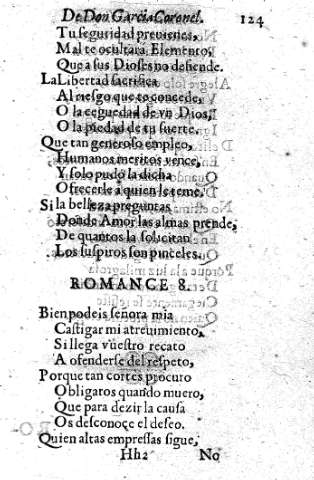 De Don Garcia Coronel. 124
Tu seguridad preuienes,
Mal te ocultara Elemento,
Que a sus Dioses no defiende.
La Libertad sacrifica
Al riesgo que to concede,
O la ceguedad de vn Dios,
O la piedad de tu suerte.
Que tan generoso empleo,
Humanos meritos vence,
Y solo pudo la dicha
Ofrecerle a quien le teme.
Si la belleza preguntas
Donde Amor las almas prende,
De quantos la solicitan
Los suspiros son pinceles.
ROMANCE 8.
Bien podeis señora mia
Castigar mi atreuimiento,
Si llega vuestro recato
A ofenderse del respeto,
Porque tan cortes procuro
Obligaros quando muero,
Que para dezir la causa
Os desconoçe el deseo.
Quien altas empressas sigue,
Hh2 No